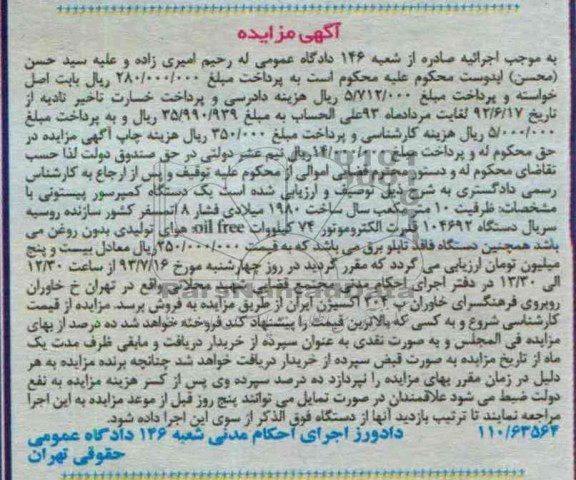 آگهی مزایده
به موجب اجرائیه صادره از شعبه ۱۴۶ دادگاه عمومی له رحیم امیری زاده و علیه سید حسن
(محسن) ایدوست محکوم علیه محکوم است به پرداخت مبلغ ۲۸۰/۰۰۰/۰۰۰ ریال بابت اصل
خواسته و پرداخت مبلغ ۵/۷۱۲/۰۰۰ ریال هزینه دادرسی و پرداخت خسارت تاخیر تادیه از
تاریخ ۹۲/۶/۱۷ لغایت مردادماه ۹۳علی الحساب به مبلغ ۳۵/۹۹۰/۹۳۹ ریال و به پرداخت مبلغ
۵/۰۰۰/۰۰۰ ریال هزینه کارشناسی و پرداخت مبلغ ۳۵۰/۰۰۰ ریال هزینه چاپ آگهی مزایده در
حق محکوم له و پرداخت مبلغ ۱۴/۰۰۰/۰۰۰ریال نیم عشر دولتی در حق صندوق دولت لذا حسب
تقاضای محکوم له و دستور محترم قضایی اموالی از محکوم علیه توقیف و پس از ارجاع به کارشناس
رسمی دادگستری به شرح ذیل توصیف و ارزیابی شده است یک دستگاه کمپرسور پیستونی با
مشخصات: ظرفیت ۱۰ مترمکعب سال ساخت ۱۹۸۰ میلادی فشار ۸ اتمسفر کشور سازنده روسیه
سریال دستگاه ۱۰۴۶۹۲ قدرت الکتروموتور ۷۴ کیلووات oil free: هوای تولیدی بدون روغن می
باشد همچنین دستگاه فاقد تابلو برق می باشد که به قسمت ۲۵۰/۰۰۰/۰۰۰ریال معادل بیست و پنج
میلیون تومان ارزیابی می گردد که مقرر گردید در روز چهارشنبه مورخ ۹۳/۷/۱۶ از ساعت ۱۲/۳۰
الی ۱۳/۳۰ در دفتر اجرای احکام مدنی مجتمع قضایی شهید محلاتی واقع در تهران خ خاوران
روبروی فرهنگسرای خاوران ب ۲۰۴ اکسیژن ایران از طریق مزایده به فروش برسد. مزایده از قیمت
کارشناسی شروع و به کسی که بالاترین قیمت را پیشنهاد کند فروخته خواهد شد ده درصد از بهای
مزایده فی المجلس و به صورت نقدی به عنوان سپرده از خریدار دریافت و مابقی ظرف مدت یک
ماه از تاریخ مزایده به صورت قبض سپرده از خریدار دریافت خواهد شد چنانچه برنده مزایده به هر
دلیل در زمان مقرر بهای مزایده را نپردازد ده درصد سپرده وی پس از کسر هزینه مزایده به نفع
دولت ضبط می شود علاقمندان در صورت تمایل می توانند پنج روز قبل از موعد مزایده به این اجرا
مراجعه نمایند تا ترتیب بازدید آنها از دستگاه فوق الذکر از سوی این اجرا داده شود.
۱۱۰/۶۳۵۶۴ دادورز اجرای احکام مدنی شعبه ۱۴۶ دادگاه عمومی
حقوقی تهران